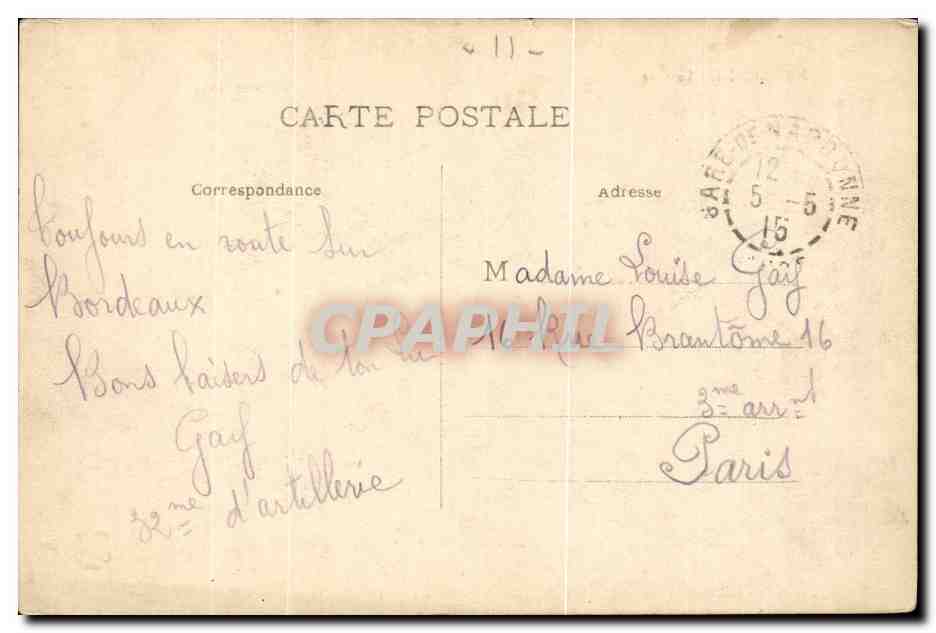 11
CARTE POSTALE
Correspondance
Adresse
GARE DE NARBONNE
12
5 - 5
15
Toujours en route sur
Bordeaux
Bons baisers de ton
Gay
32me d'artillerie
Madame Louise Gay
16 Rue Brantôme 16
3me arrnt
Paris
CPAPHIL